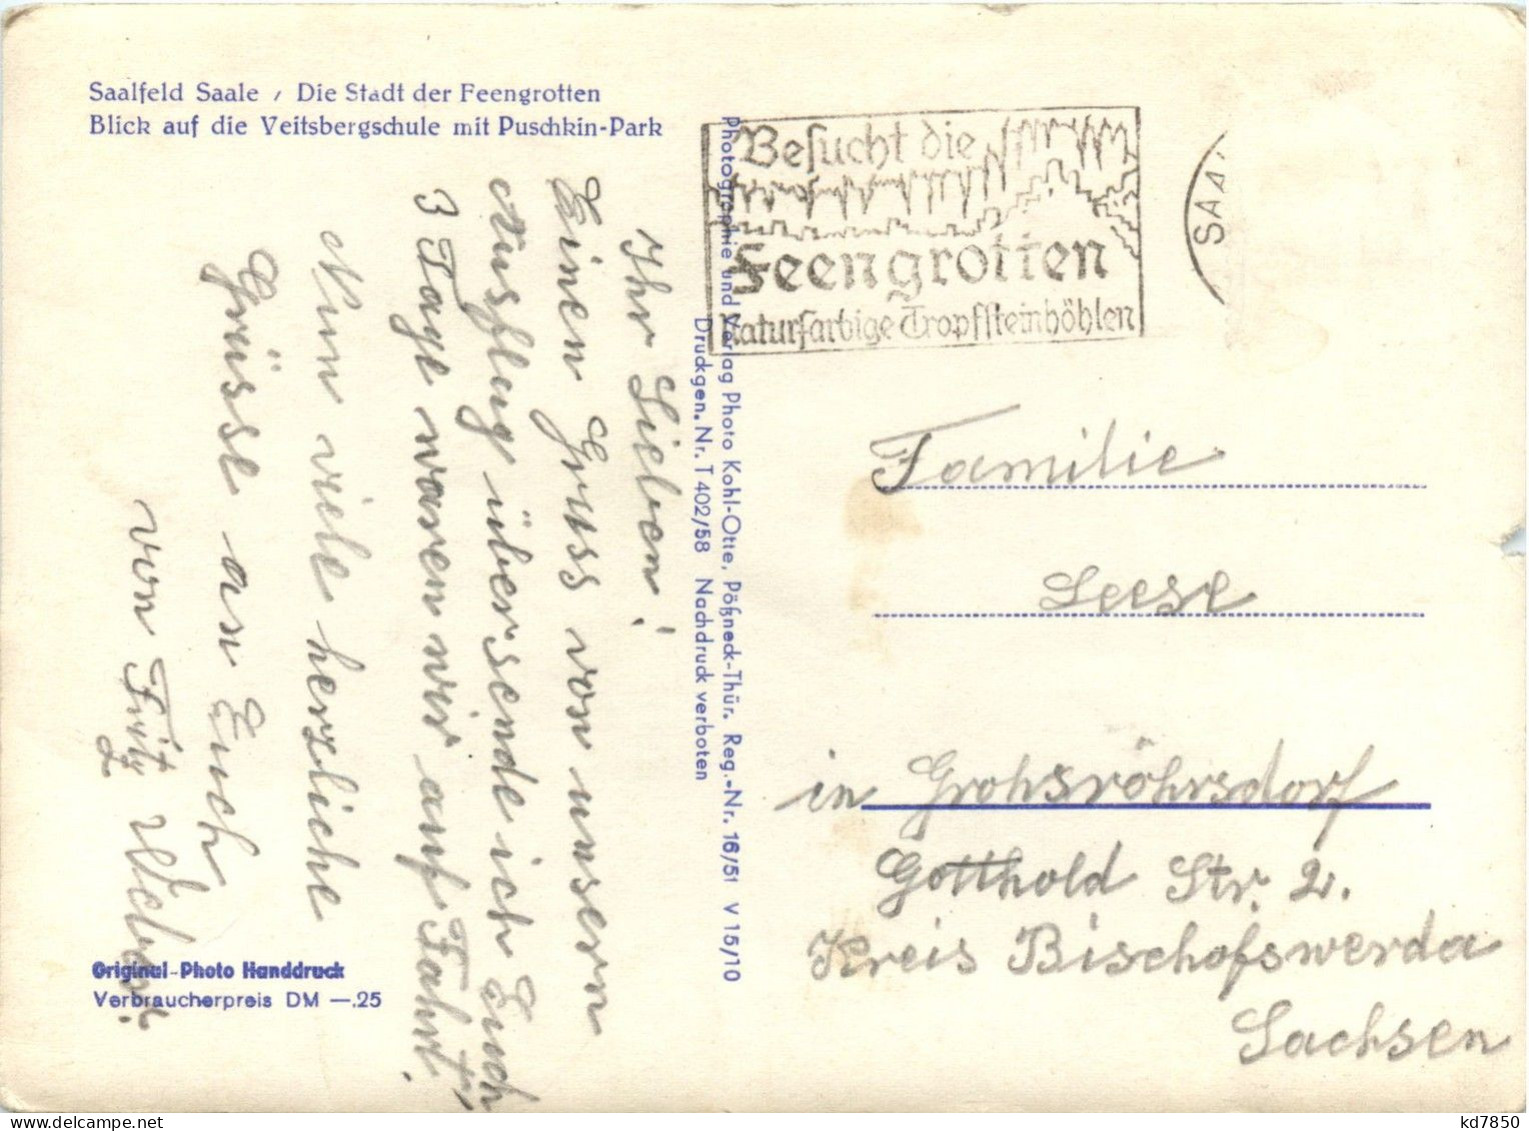 Saalfeld Saale / Die Stadt der Feengrotten
Blick auf die Veitsbergschule mit Puschkin-Park
Ihr Lieben!
Einen Gruss von unsern
Ausflug übersende ich Euch
3 Tage waren wir auf Fahrt,
Nun viele herzliche
Grüsse an Euch
von Fritz Weber.
Original-Photo Handdruck
Verbraucherpreis DM —.25
Photographie und Verlag Photo Kohl-Otte, Pößneck-Thür. Reg.-Nr. 16/51 V 15/10
Druckgen. Nr. T 402/58 Nachdruck verboten
Besucht die
Feengrotten
Naturfarbige Tropfsteinhöhlen
SAA
Familie
Leese
in Grohsröhrsdorf
Gotthold Str. 2.
Kreis Bischofswerda
Sachsen
kd7850